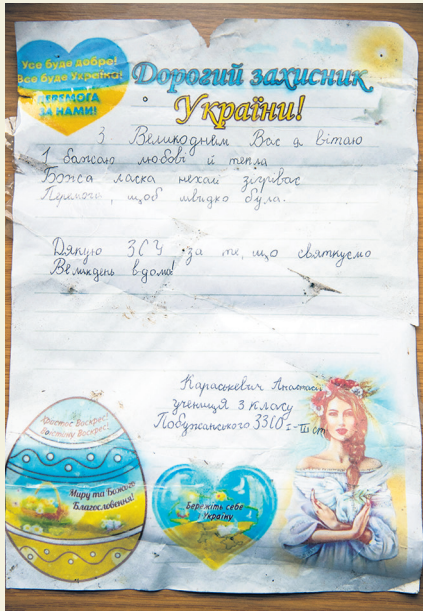 Усе буде добре!
Все буде Україна!
ПЕРЕМОГА
ЗА НАМИ!
Дорогий захисник
України!
З Великоднем Вас я вітаю
І бажаю любові й тепла
Божа ласка нехай зігріває
Перемога, щоб швидко була.
Дякую ЗСУ за те, що святкуємо
Великдень вдома!
Караськевич Анастасія
учениця 3 класу
Побужанського ЗЗСО І-ІІІ ст.
Христос Воскрес!
Воістину Воскрес!
Миру та Божого
Благословення!
Бережіть себе
Україну